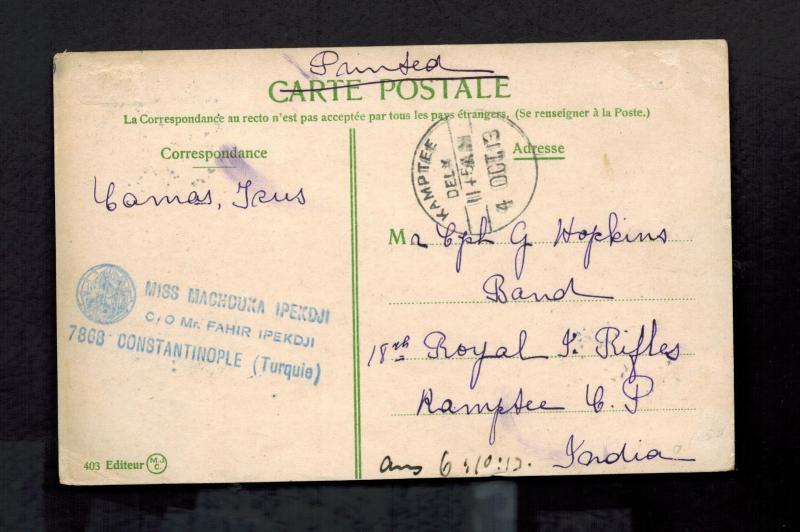 Printed
CARTE POSTALE
La Correspondance au recto n'est pas acceptée par tous les pays étrangers. (Se renseigner à la Poste.)
Correspondance
Adresse
KAMPTEE
DELY
4 OCT. 13
MISS MACHOUKA IPEKDJI
C/O Mr. FAHIR IPEKDJI
7868 CONSTANTINOPLE (Turquie)
Mr Cph G Hopkins
Band
18th Royal I. Rifles
Kamptee C. P
India
Ans 6:10:13.
403 Editeur M.J.C.